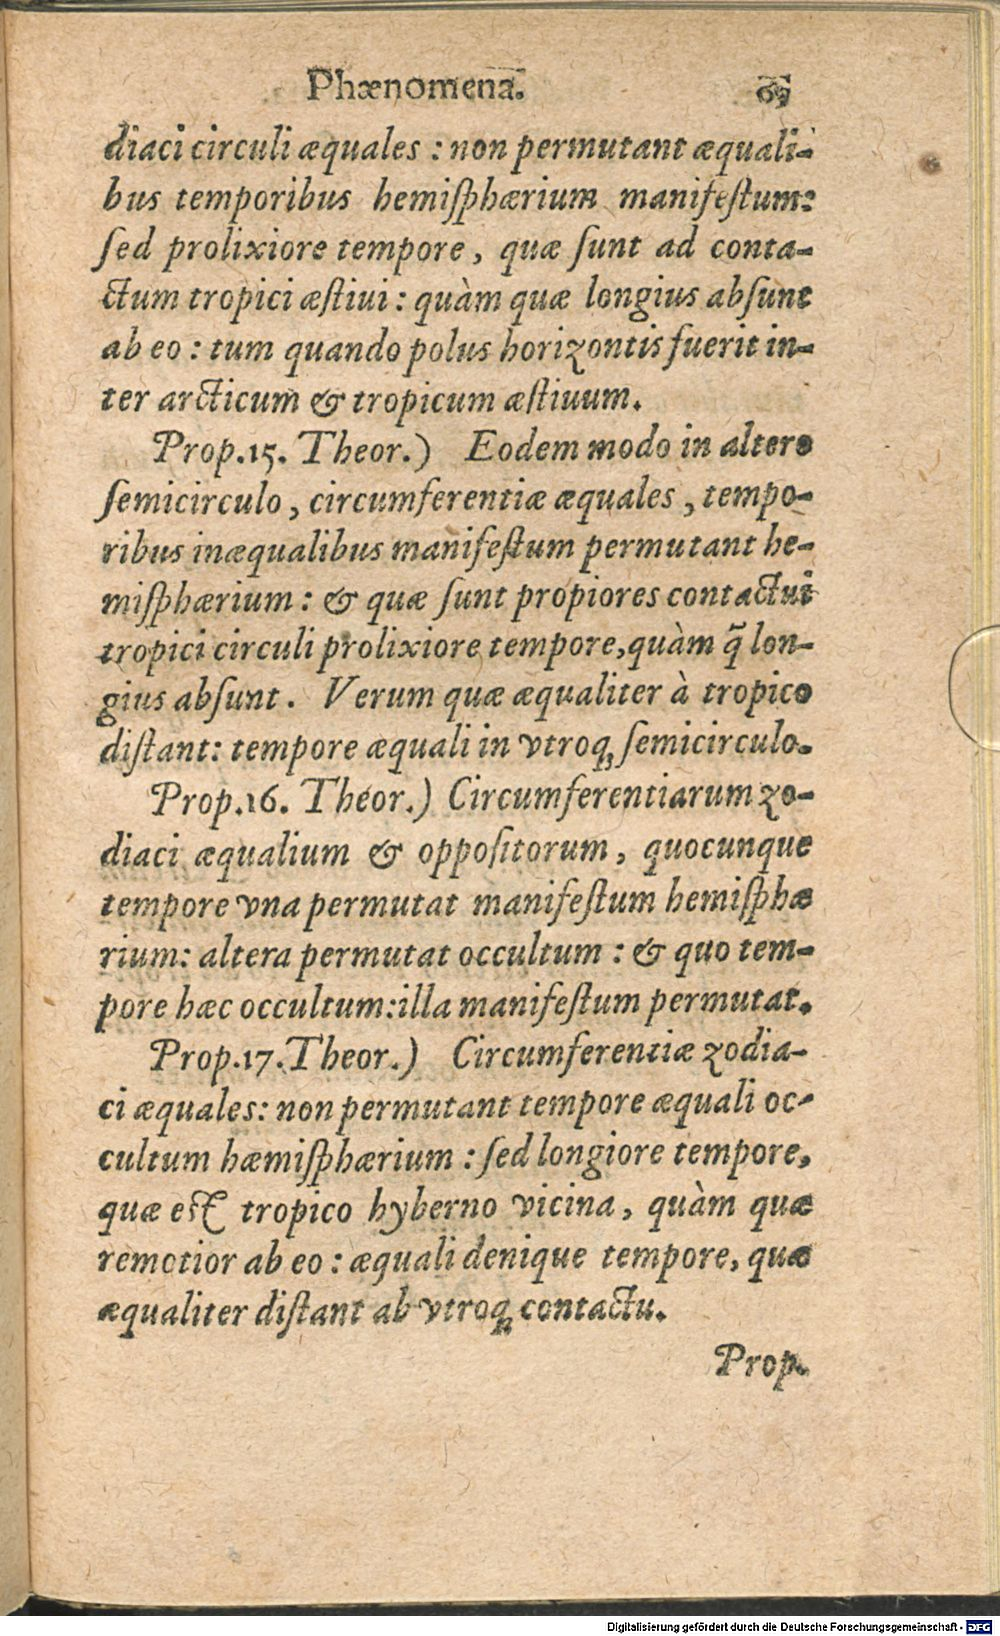 Phænomena. 69
diaci circuli æquales : non permutant æquali-
bus temporibus hemiſphærium manifeſtum:
ſed prolixiore tempore, quæ ſunt ad conta-
ctum tropici æſtiui : quàm quæ longius abſunt
ab eo : tum quando polus horizontis fuerit in-
ter arcticum & tropicum æſtiuum.
Prop.15. Theor.) Eodem modo in altero
ſemicirculo, circumferentiæ æquales, tempo-
ribus inæqualibus manifeſtum permutant he-
miſphærium : & quæ ſunt propiores contactui
tropici circuli prolixiore tempore, quàm q̃ lon-
gius abſunt. Verum quæ æqualiter à tropico
diſtant: tempore æquali in vtroq; ſemicirculo.
Prop.16. Theor.) Circumferentiarum zo-
diaci æqualium & oppoſitorum, quocunque
tempore vna permutat manifeſtum hemiſphæ
rium: altera permutat occultum : & quo tem-
pore hæc occultum: illa manifeſtum permutat.
Prop.17. Theor.) Circumferentiæ zodia-
ci æquales: non permutant tempore æquali oc-
cultum hæmiſphærium : ſed longiore tempore,
quæ eſt tropico hyberno vicina, quàm quæ
remotior ab eo : æquali denique tempore, quæ
æqualiter diſtant ab vtroq; contactu.
Prop.
Digitalisierung gefördert durch die Deutsche Forschungsgemeinschaft - DFG